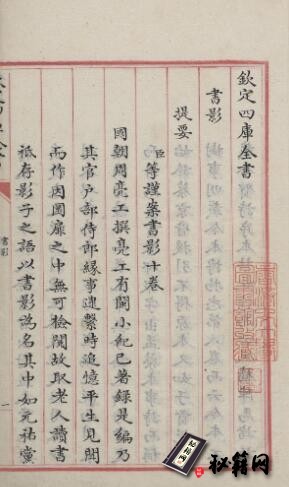 欽定四庫全書
書影
提要
臣等謹案書影十卷
國朝周亮工撰亮工有閩小紀已著録是編乃
其官户部侍郎緣事逮繫時追憶平生見聞
而作因圜扉之中無可檢閲故取老人讀書
祗存影子之語以書影為名其中如元祐黨
書影
一
秘籍网